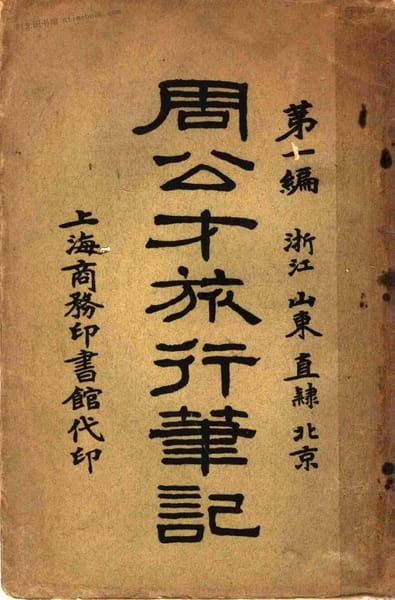 第一编 浙江 山東 直隸 北京
周公才旅行筆記
上海商務印書館代印